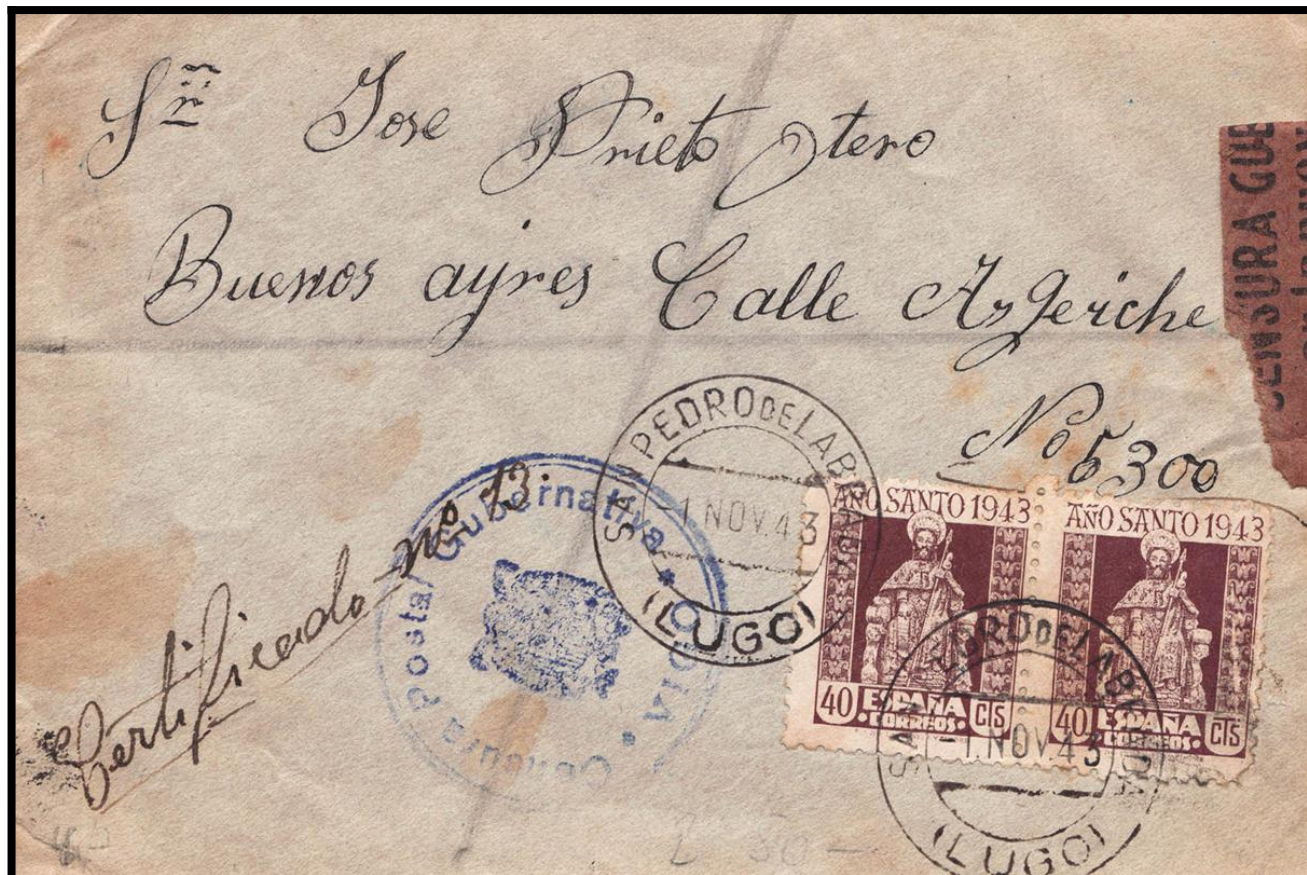 Sr Jose Prieto Otero
Buenos ayres Calle
No 6300
Certificado nº 13.
CENSURA GUB
Censura Postal Gubernativa *
SAN PEDRO DE LABRADA
-1 NOV. 43
(LUGO)
AÑO SANTO 1943
40 ESPAÑA CTS
CORREOS
AÑO SANTO 1943
40 ESPAÑA CTS
CORREOS
-1 NOV. 43
(LUGO)